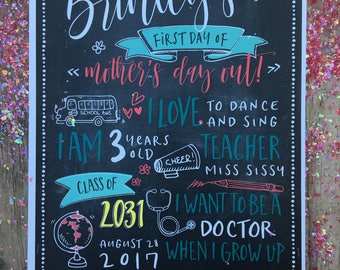 Brinley's
FIRST DAY OF
« mother's day out! »
SCHOOL BUS
I LOVE TO DANCE AND SING
I AM 3 YEARS OLD
CHEER!
TEACHER
MISS SISSY
CLASS OF
2031
I WANT TO BE A
DOCTOR
WHEN I GROW UP
AUGUST 28
2017